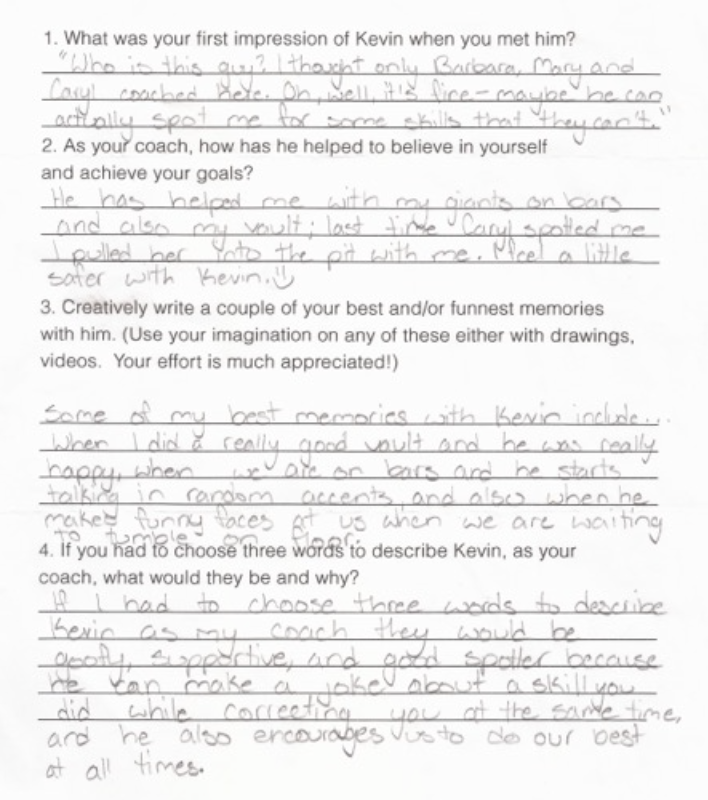 1. What was your first impression of Kevin when you met him?
"Who is this guy? I thought only Barbara, Mary and
Caryl coached here. Oh, well, it's fine - maybe he can
actually spot me for some skills that they can't."
2. As your coach, how has he helped to believe in yourself
and achieve your goals?
He has helped me with my giants on bars
and also my vault; last time Caryl spotted me
I pulled her into the pit with me. I feel a little
safer with Kevin. ☺
3. Creatively write a couple of your best and/or funnest memories
with him. (Use your imagination on any of these either with drawings,
videos. Your effort is much appreciated!)
Some of my best memories with Kevin include...
When I did a really good vault and he was really
happy, when we are on bars and he starts
talking in random accents, and also when he
makes funny faces at us when we are waiting
to tumble on floor.
4. If you had to choose three words to describe Kevin, as your
coach, what would they be and why?
If I had to choose three words to describe
Kevin as my coach they would be
goofy, supportive, and good spotter because
he can make a joke about a skill you
did while correcting you at the same time,
and he also encourages us to do our best
at all times.